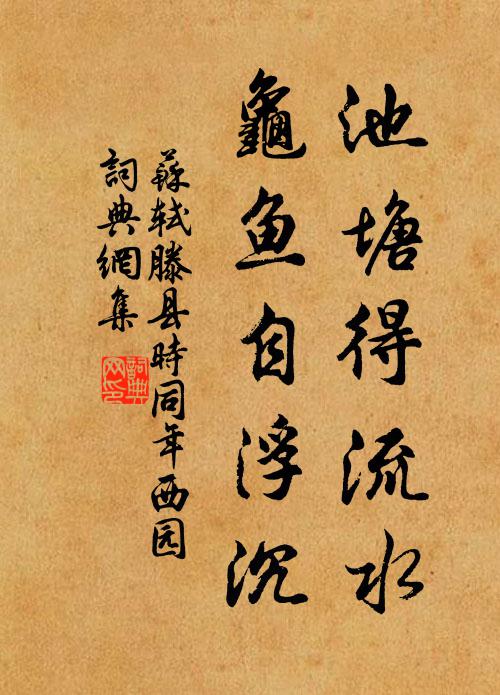 池塘得流水
龜鱼自浮沉
蘇轼滕县時同年西园
詞典網集
詞典网印